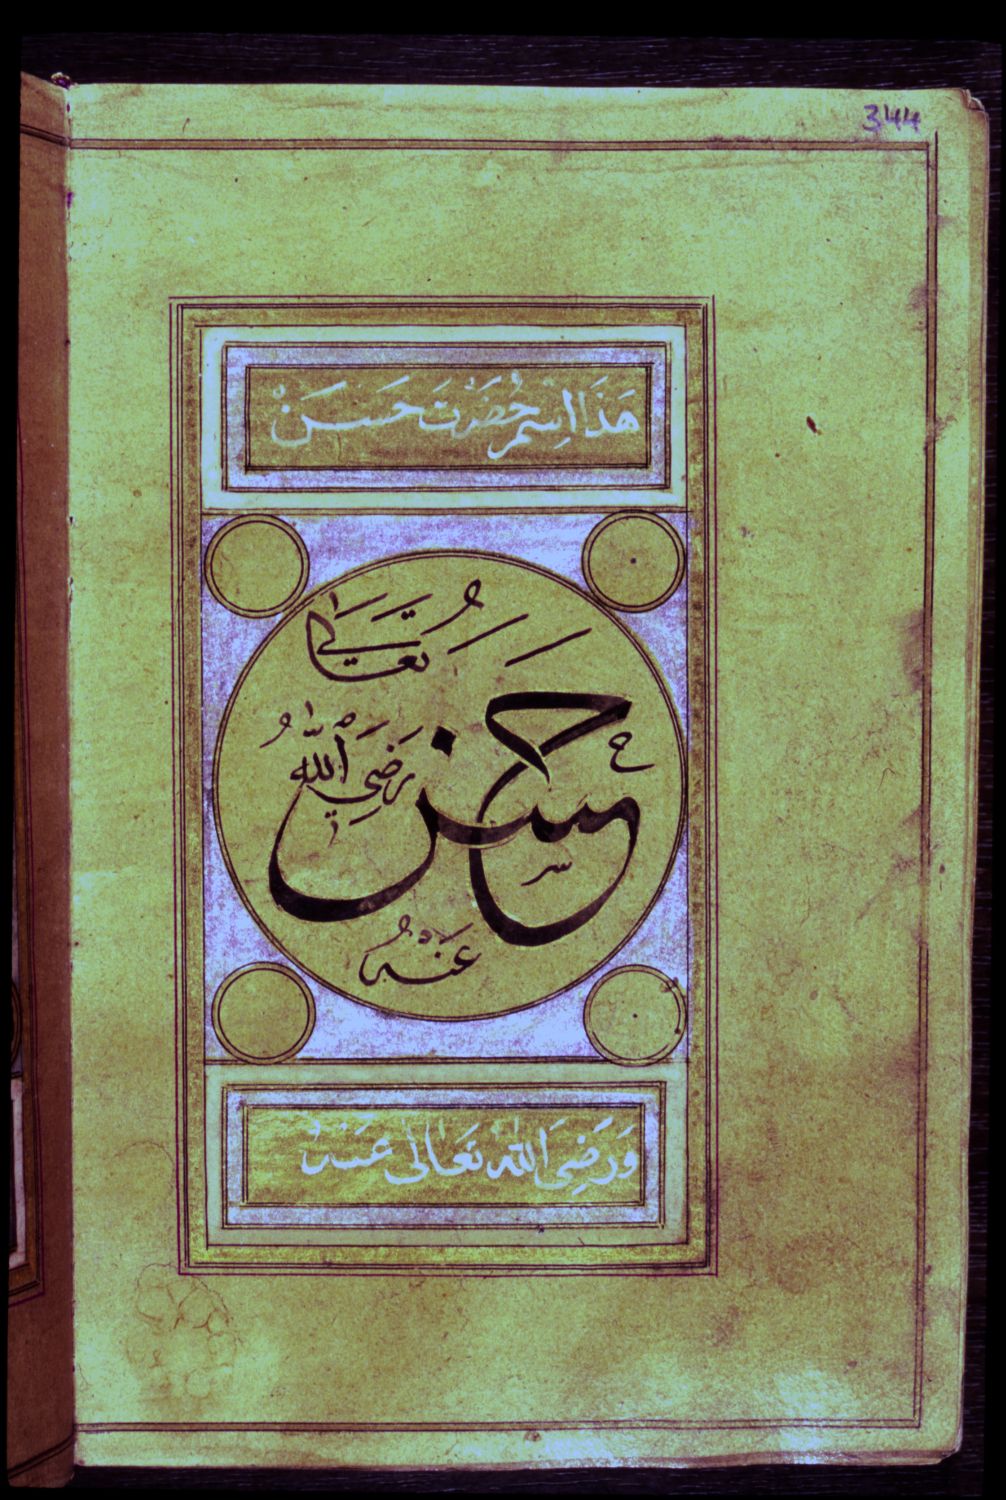 344
هَذَا اِسْم حَضْرَتَ حَسَنْ
حسن
رَضِيَ اللّٰهُ
تعَالى
عَنْهُ
وَرَضِىَ اللّٰهُ تَعَالٰى عَنْهُ